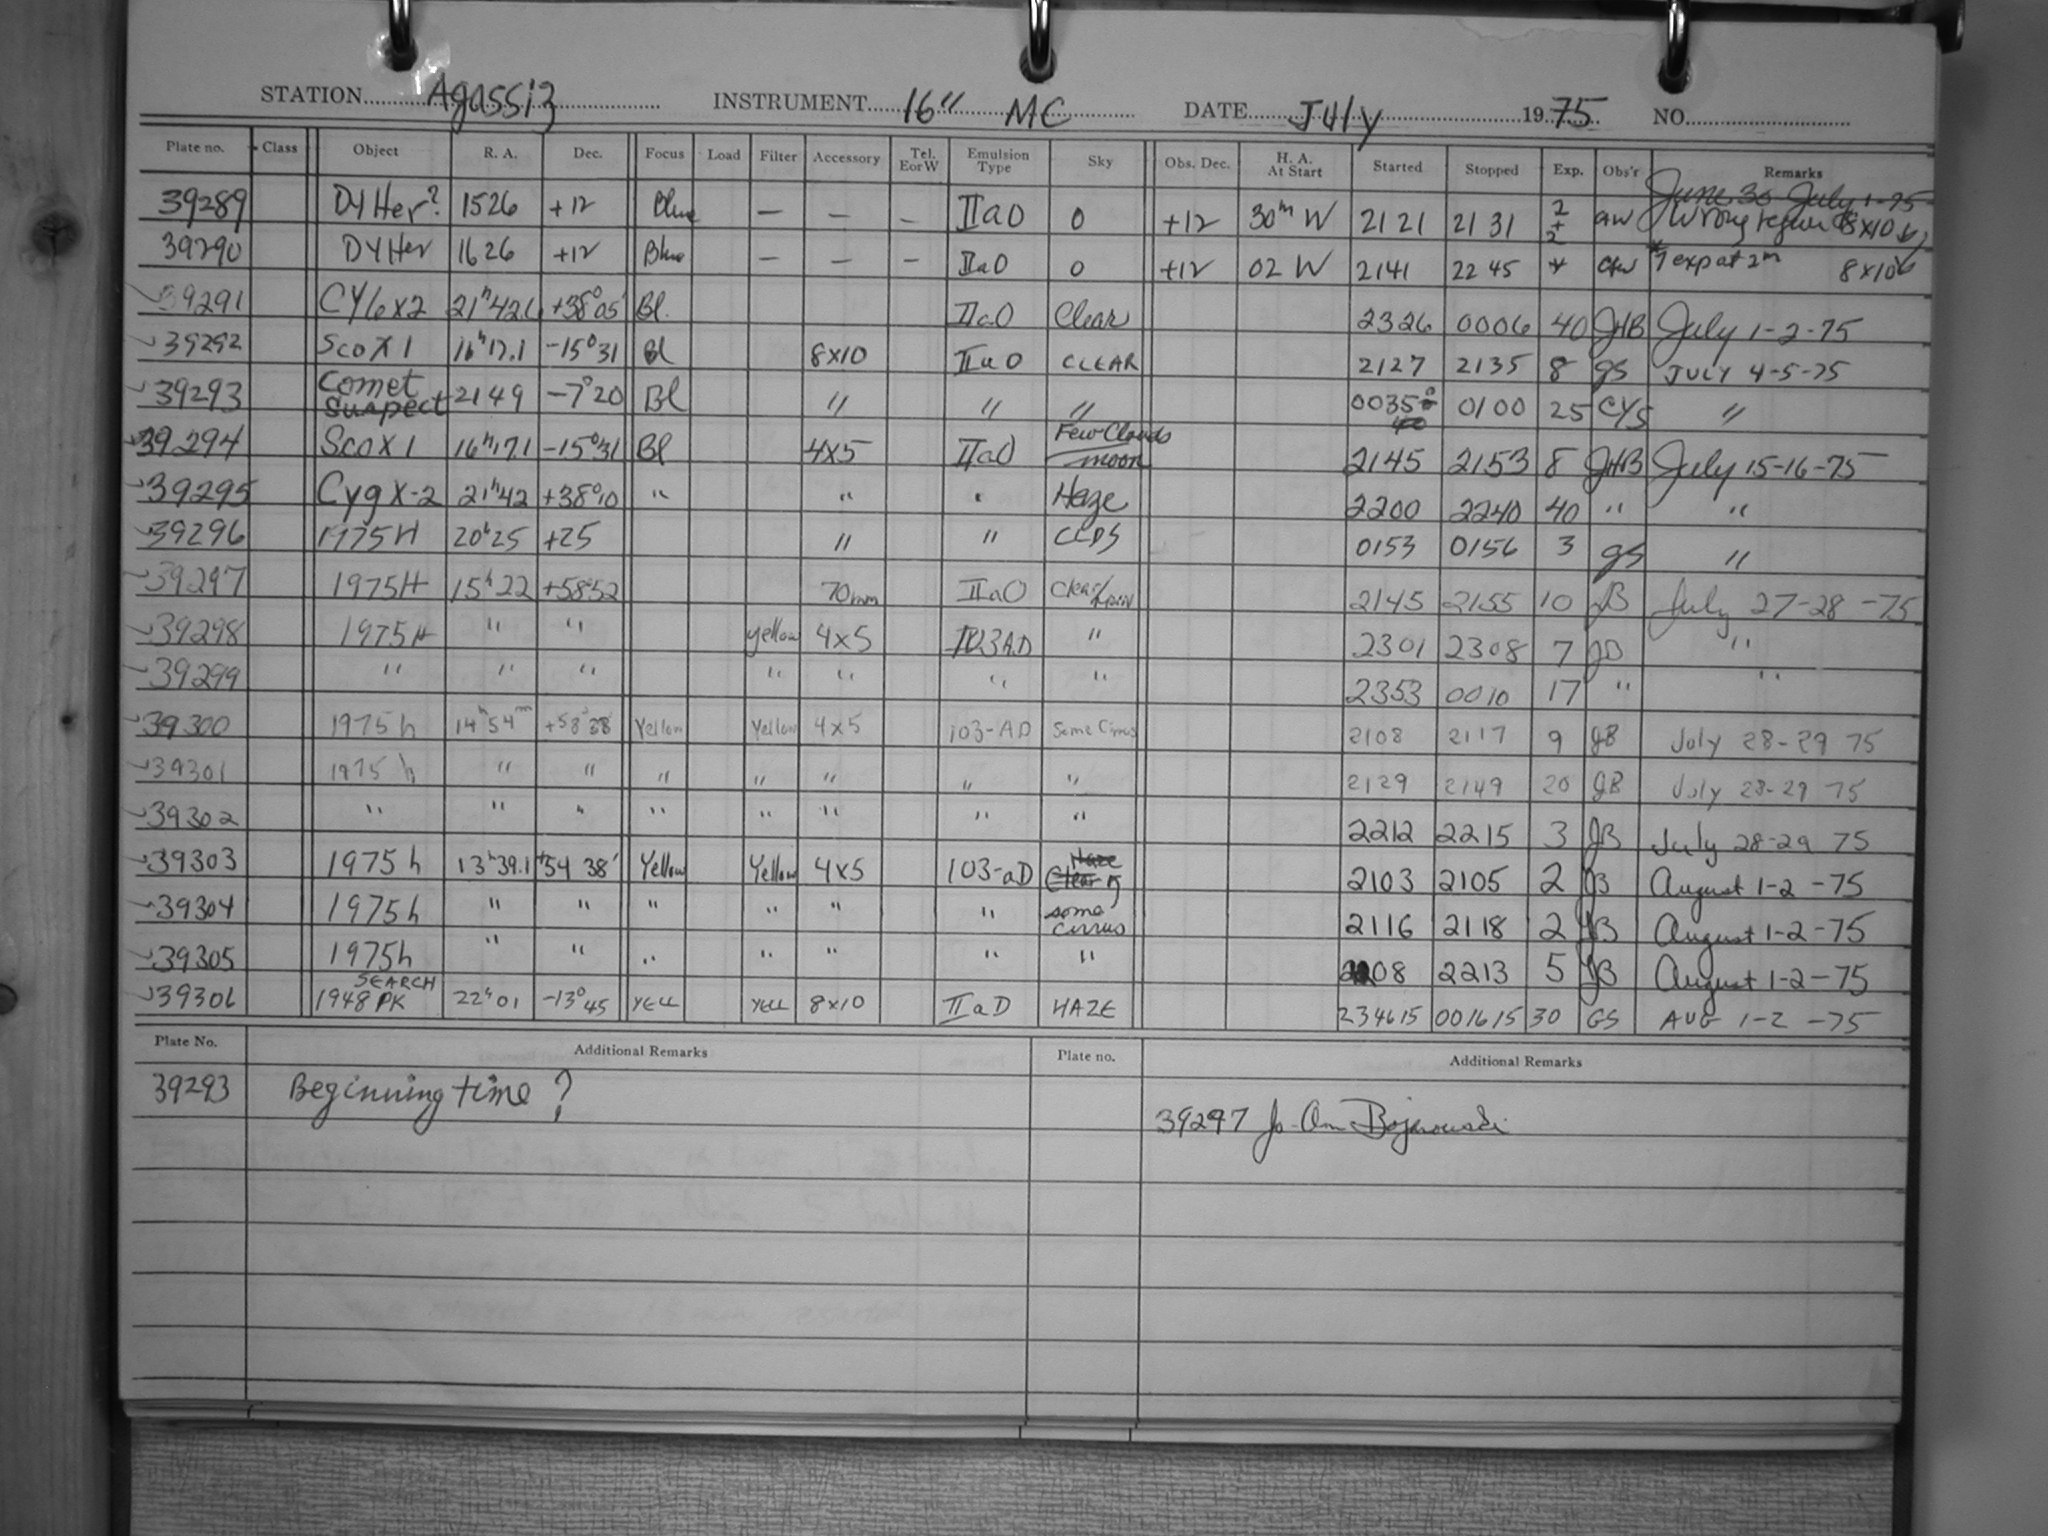 STATION Agassiz INSTRUMENT 16" MC DATE July 1975 NO.
Plate no. Class Object R. A. Dec. Focus Load Filter Accessory Tel. E or W Emulsion Type Sky Obs. Dec. H. A. At Start Started Stopped Exp. Obs'r Remarks
June 30 July 1-75
39289 DY Her? 1526 +12 Blue — — — IIaO 0 +12 30m W 2121 2131 2+2 aw Wrong region 8x10
39290 DY Her 1626 +12 Blue — — — IIaO 0 +12 02 W 2141 2245 * aw *7 exp at 2m 8x10
39291 CYG X2 21h42.6 +38°05' Bl. IIaO Clear 2326 0006 40 JHB July 1-2-75
39292 Sco X1 16h17.1 -15°31 Bl 8x10 IIaO CLEAR 2127 2135 8 gs JULY 4-5-75
39293 Comet Suspect 2149 -7°20 Bl " " " 0035 0100 25 CYS "
39294 Sco X1 16h17.1 -15°31 Bl 4x5 IIaO Few Clouds moon 2145 2153 8 JHB July 15-16-75
39295 Cyg X-2 21h42 +38°10 " " " Haze 2200 2240 40 " "
39296 1975H 20h25 +25 " " CLDS 0153 0156 3 gs "
39297 1975H 15h22 +58°52 70mm IIaO Clear 2145 2155 10 JB July 27-28-75
39298 1975H " " yellow 4x5 103A.D " 2301 2308 7 JB "
39299 " " " " " " " 2353 0010 17 " "
39300 1975h 14h54m +58°38' Yellow Yellow 4x5 103-AD Some Cirrus 2108 2117 9 JB July 28-29 75
39301 1975h " " " " " " " 2129 2149 20 JB July 28-29 75
39302 " " " " " " " " 2212 2215 3 JB July 28-29 75
39303 1975h 13h39.1 +54 38' Yellow Yellow 4x5 103-aD Haze Clear 2103 2105 2 JB August 1-2-75
39304 1975h " " " " " " some cirrus 2116 2118 2 JB August 1-2-75
39305 1975h " " " " " " " 2208 2213 5 JB August 1-2-75
39306 SEARCH 1948 PK 22h01 -13°45 YELL YELL 8x10 IIaD HAZE 234615 001615 30 GS AUG 1-2-75
Plate No. Additional Remarks Plate no. Additional Remarks
39293 Beginning time ?
39297 Jo-Ann